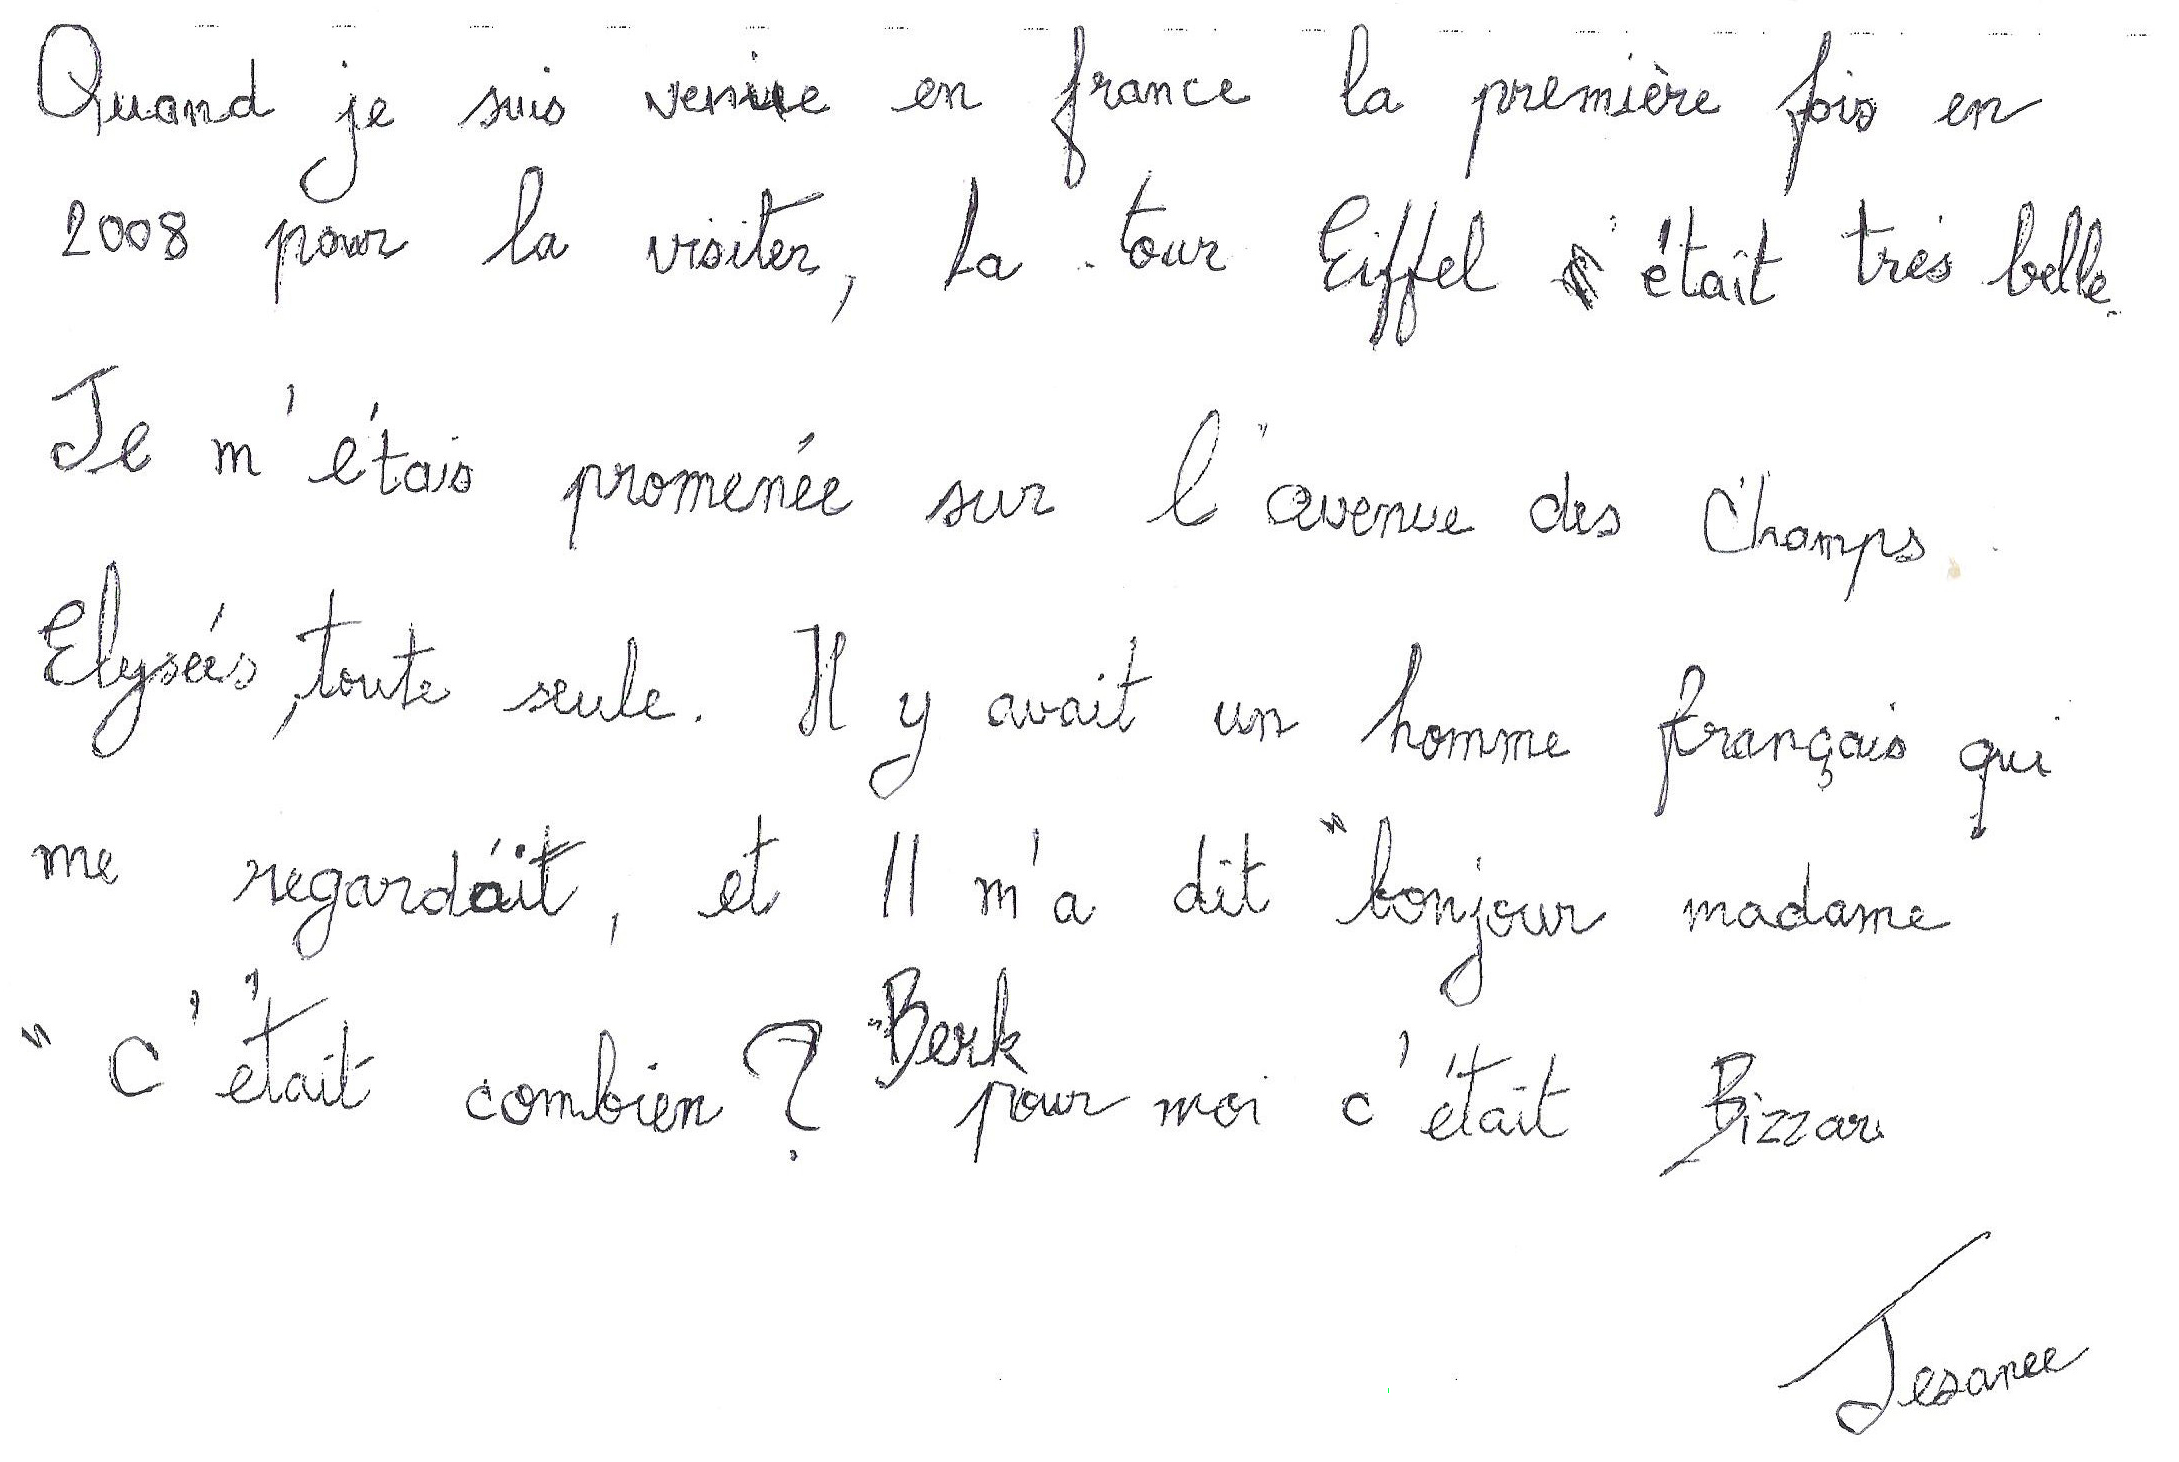 Quand je suis venue en france la première fois en
2008 pour la visiter, La tour Eiffel était très belle.
Je m'étais promenée sur l'avenue des Champs
Elyseés, toute seule. Il y avait un homme français qui
me regardait, et Il m'a dit "bonjour madame
" c'était combien ? "Berk pour moi c'était Bizzar
Jesanee